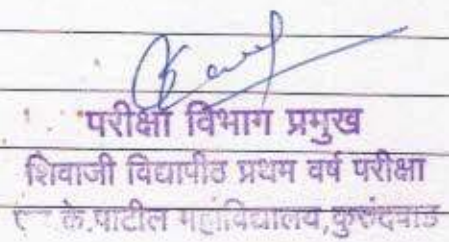 परीक्षा विभाग प्रमुख
शिवाजी विद्यापीठ प्रथम वर्ष परीक्षा
के.पाटील महाविद्यालय,कुरुंदवाड